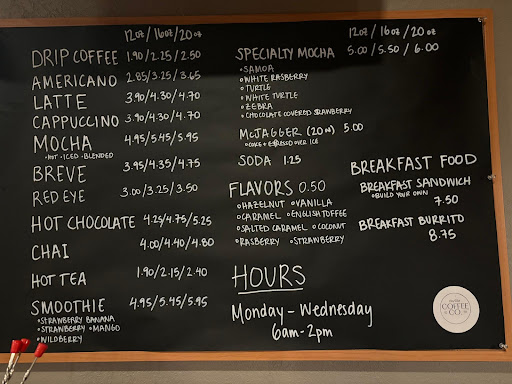 12oz / 16oz / 20oz
DRIP COFFEE 1.90/2.25/2.50
AMERICANO 2.85/3.25/3.65
LATTE 3.90/4.30/4.70
CAPPUCCINO 3.90/4.30/4.70
MOCHA 4.95/5.45/5.95
•HOT •ICED •BLENDED
BREVE 3.95/4.35/4.75
RED EYE 3.00/3.25/3.50
HOT CHOCOLATE 4.25/4.75/5.25
CHAI 4.00/4.40/4.80
HOT TEA 1.90/2.15/2.40
SMOOTHIE 4.95/5.45/5.95
•STRAWBERRY BANANA
•STRAWBERRY •MANGO
•WILDBERRY
12oz / 16oz / 20oz
SPECIALTY MOCHA 5.00 / 5.50 / 6.00
•SAMOA
•WHITE RASBERRY
•TURTLE
•WHITE TURTLE
•ZEBRA
•CHOCOLATE COVERED STRAWBERRY
MCJAGGER (20oz) 5.00
•COKE + ESPRESSO OVER ICE
SODA 1.25
FLAVORS 0.50
•HAZELNUT •VANILLA
•CARAMEL •ENGLISH TOFFEE
•SALTED CARAMEL •COCONUT
•RASBERRY •STRAWBERRY
BREAKFAST FOOD
BREAKFAST SANDWICH
•BUILD YOUR OWN 7.50
BREAKFAST BURRITO
8.75
HOURS
Monday - Wednesday
6am-2pm
COFFEE
CO.